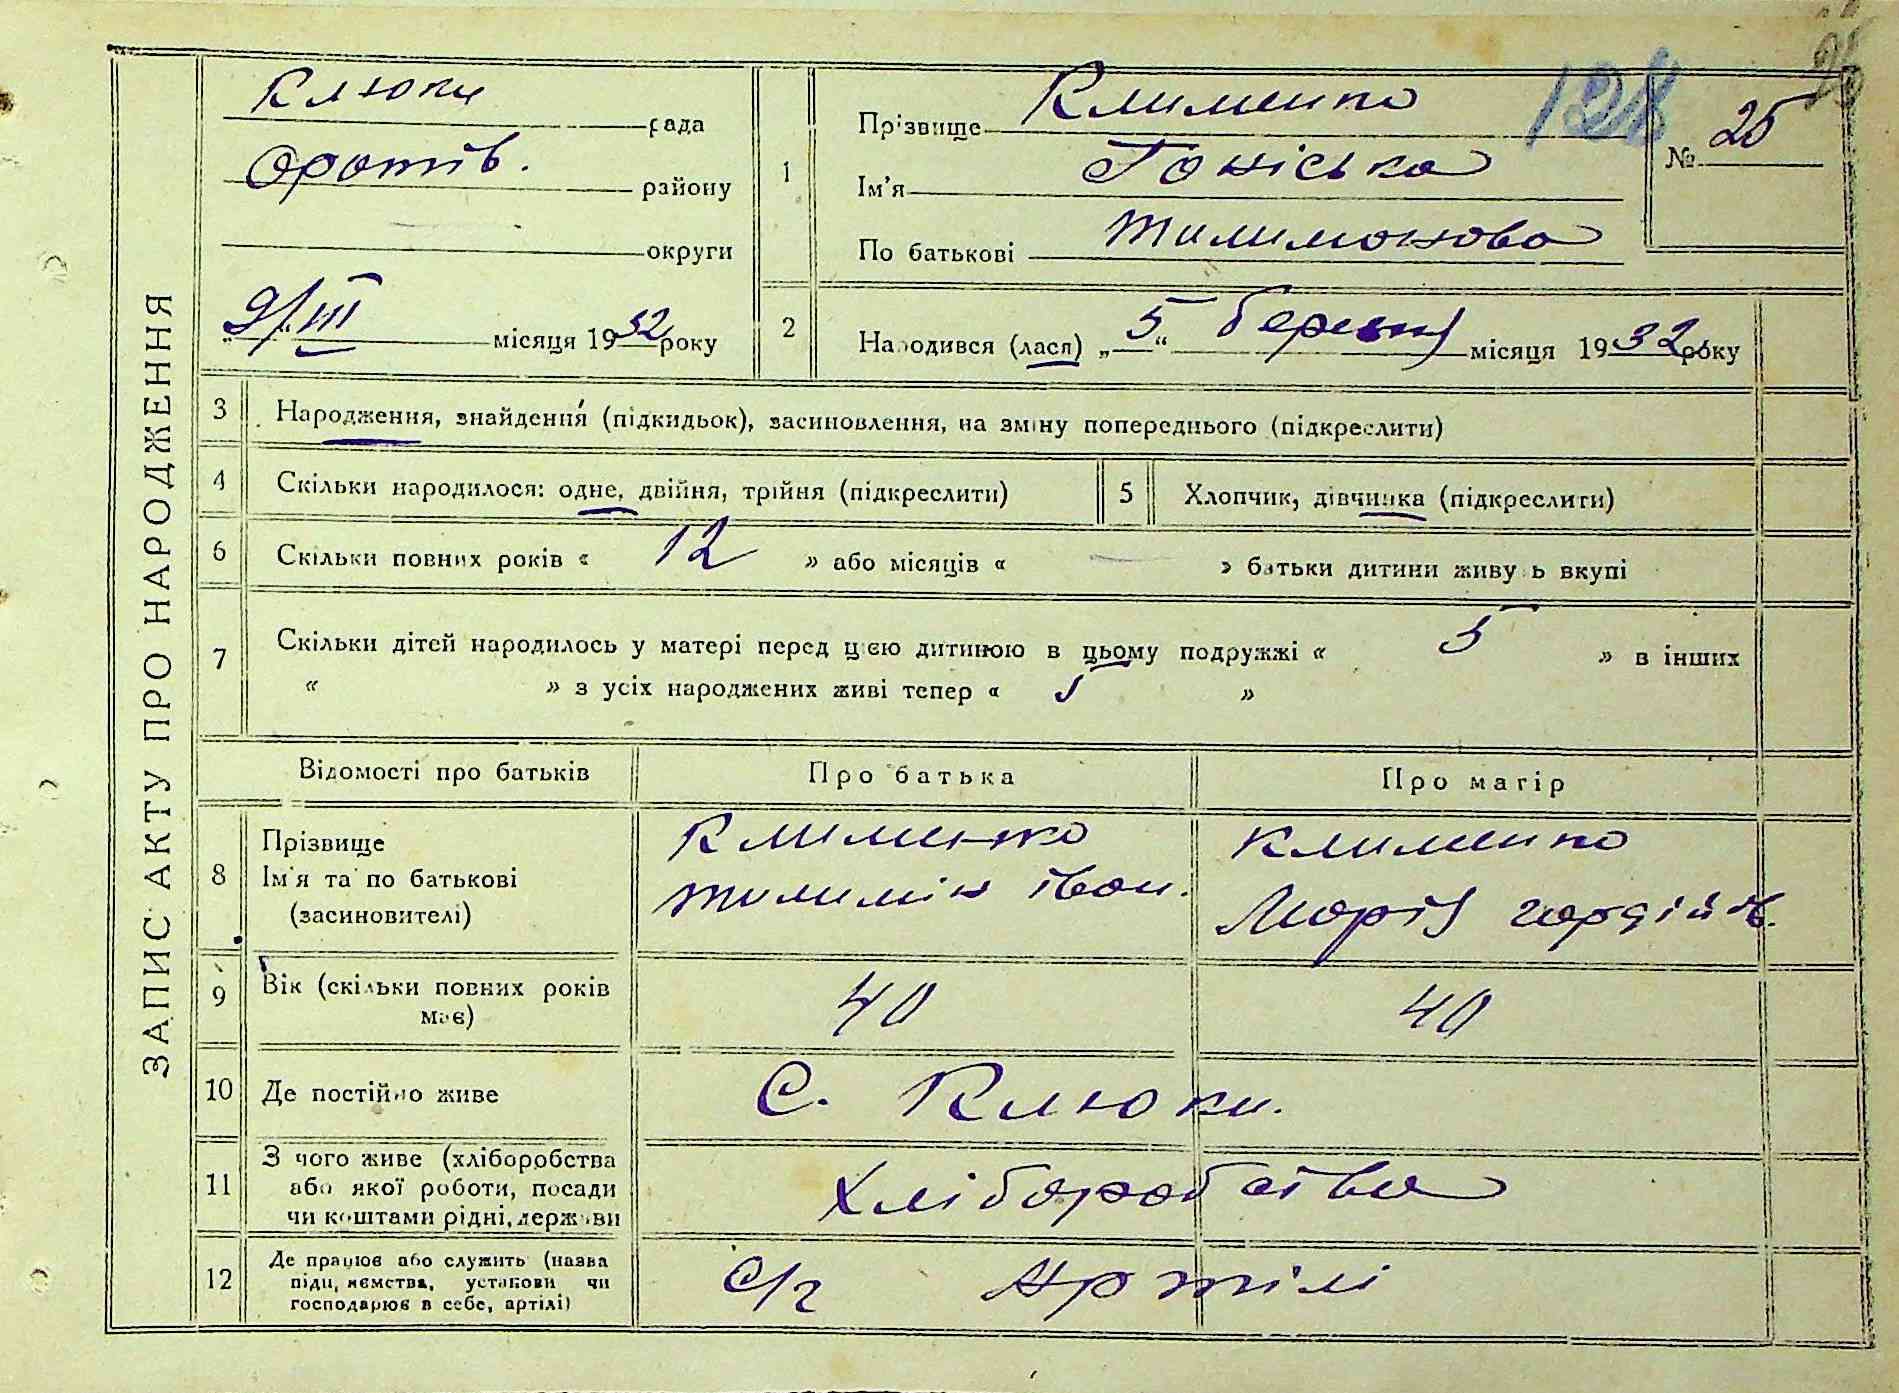 ЗАПИС АКТУ ПРО НАРОДЖЕННЯ
Клюки рада
Оратів. району
округи
9/III місяця 1932 року
1
Прізвище Клименко
Ім'я Тоніська
По батькові Тилимонова
128
№ 25
2
Народився (лася) „5“ березня місяця 1932 року
3 Народження, знайдення (підкидьок), засиновлення, на зміну попереднього (підкреслити)
4 Скільки народилося: одне, двійня, трійня (підкреслити)
5 Хлопчик, дівчинка (підкреслити)
6 Скільки повних років « 12 » або місяців « — » батьки дитини живуть вкупі
7 Скільки дітей народилось у матері перед цією дитиною в цьому подружжі « 5 » в інших
« » з усіх народжених живі тепер « 5 »
Відомості про батьків
Про батька
Про матір
8 Прізвище
Ім'я та по батькові
(засиновителі)
Клименко
Тилимін Іван.
Клименко
Марія Гордіїв.
9 Вік (скільки повних років
має)
40
40
10 Де постійно живе
С. Клюки.
11 З чого живе (хліборобства
або якої роботи, посади
чи коштами рідні, держави
Хліборобства
12 Де працює або служить (назва
підприємства, установи чи
господарює в себе, артілі)
С/г Артілі